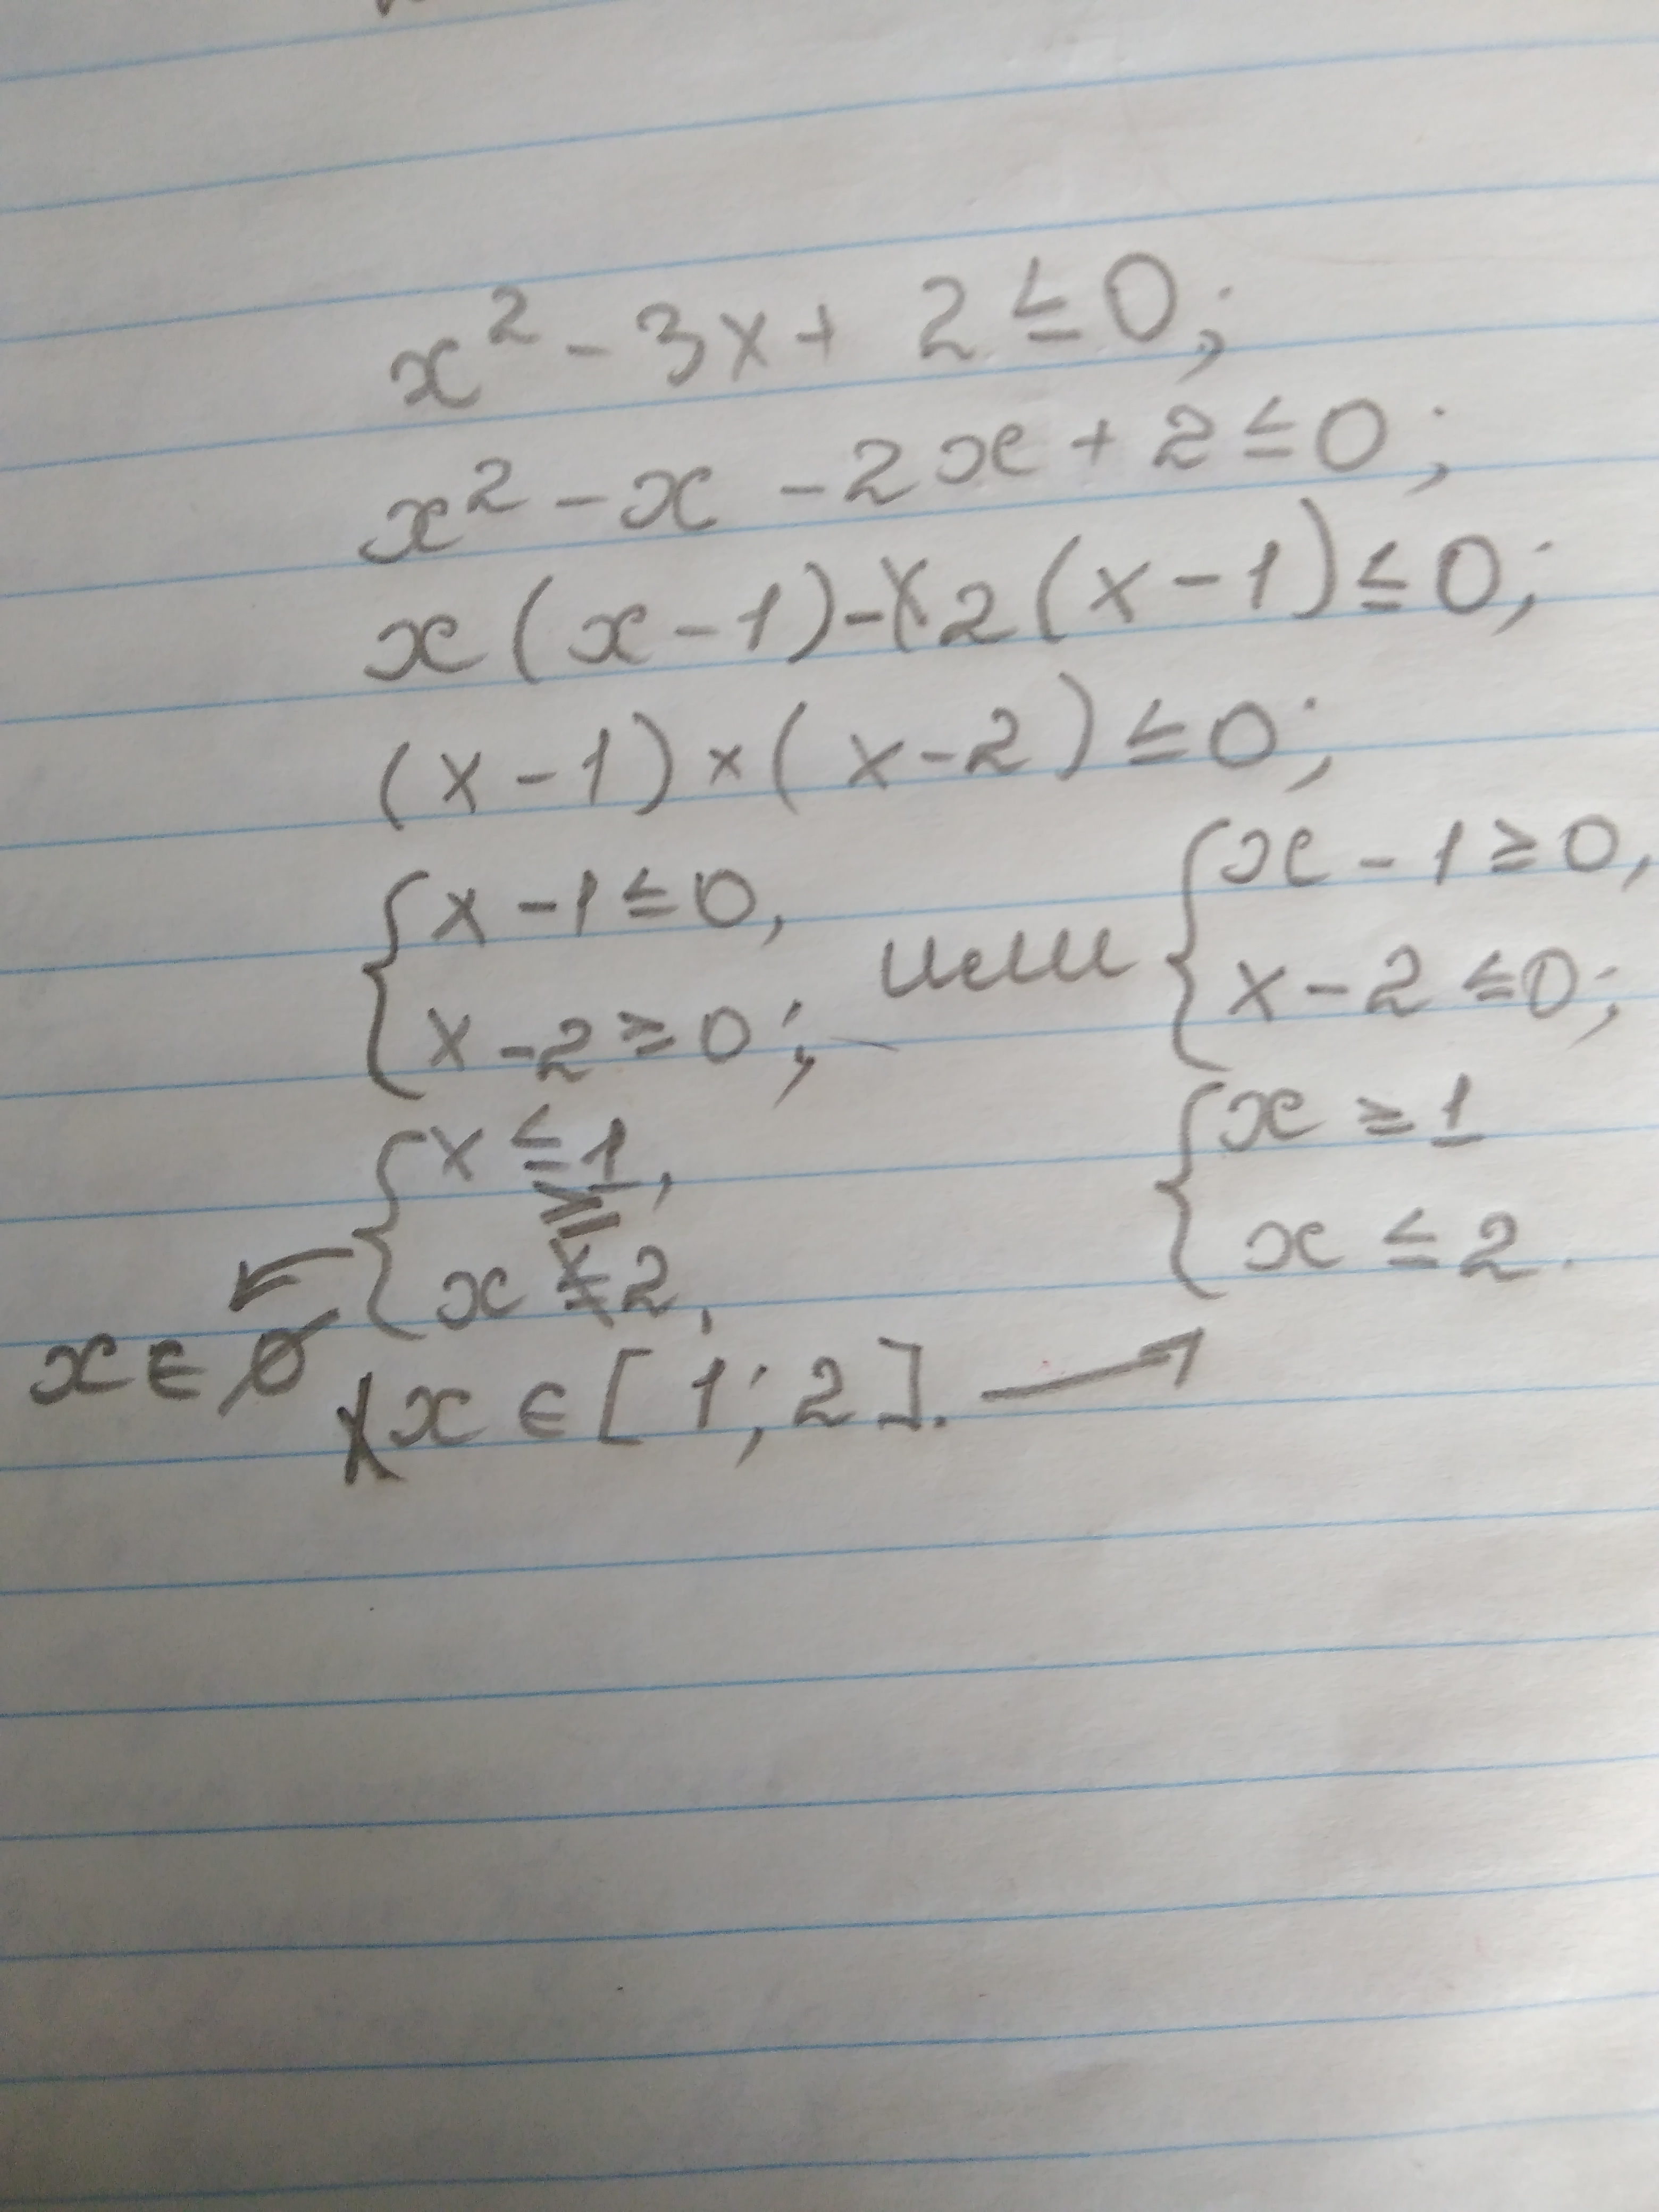 x² - 3x + 2 ≤ 0;
x² - x - 2x + 2 ≤ 0;
x(x - 1) - 2(x - 1) ≤ 0;
(x - 1) × (x - 2) ≤ 0;
{ x - 1 ≤ 0, или { x - 1 ≥ 0,
x - 2 ≥ 0; x - 2 ≤ 0;
{ x ≤ 1, { x ≥ 1
x ≥ 2. x ≤ 2.
x ∈ ∅
x ∈ [1; 2]. →